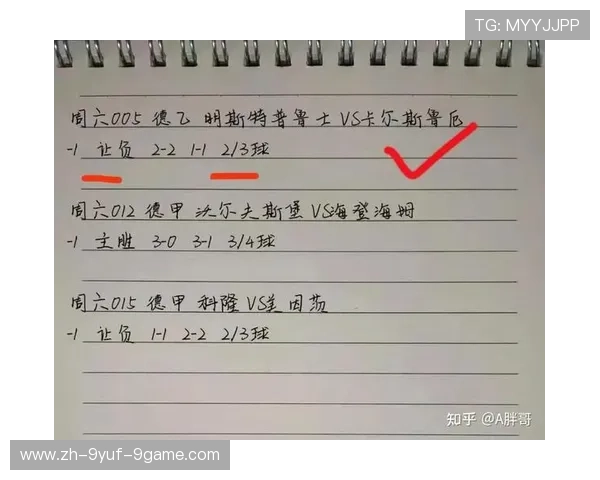 TG: MYYJJPP
周六005 德乙 明斯特普鲁士 VS卡尔斯鲁厄
-1 让负 2-2 1-1 2/3球
周六012 德甲 沃尔夫斯堡 VS海登海姆
-1 主胜 3-0 3-1 3/4球
周六015 德甲 科隆 VS美因茨
-1 让负 1-1 2-2 2/3球
知乎 @A胖哥
www.zh-9yuf-9game.com